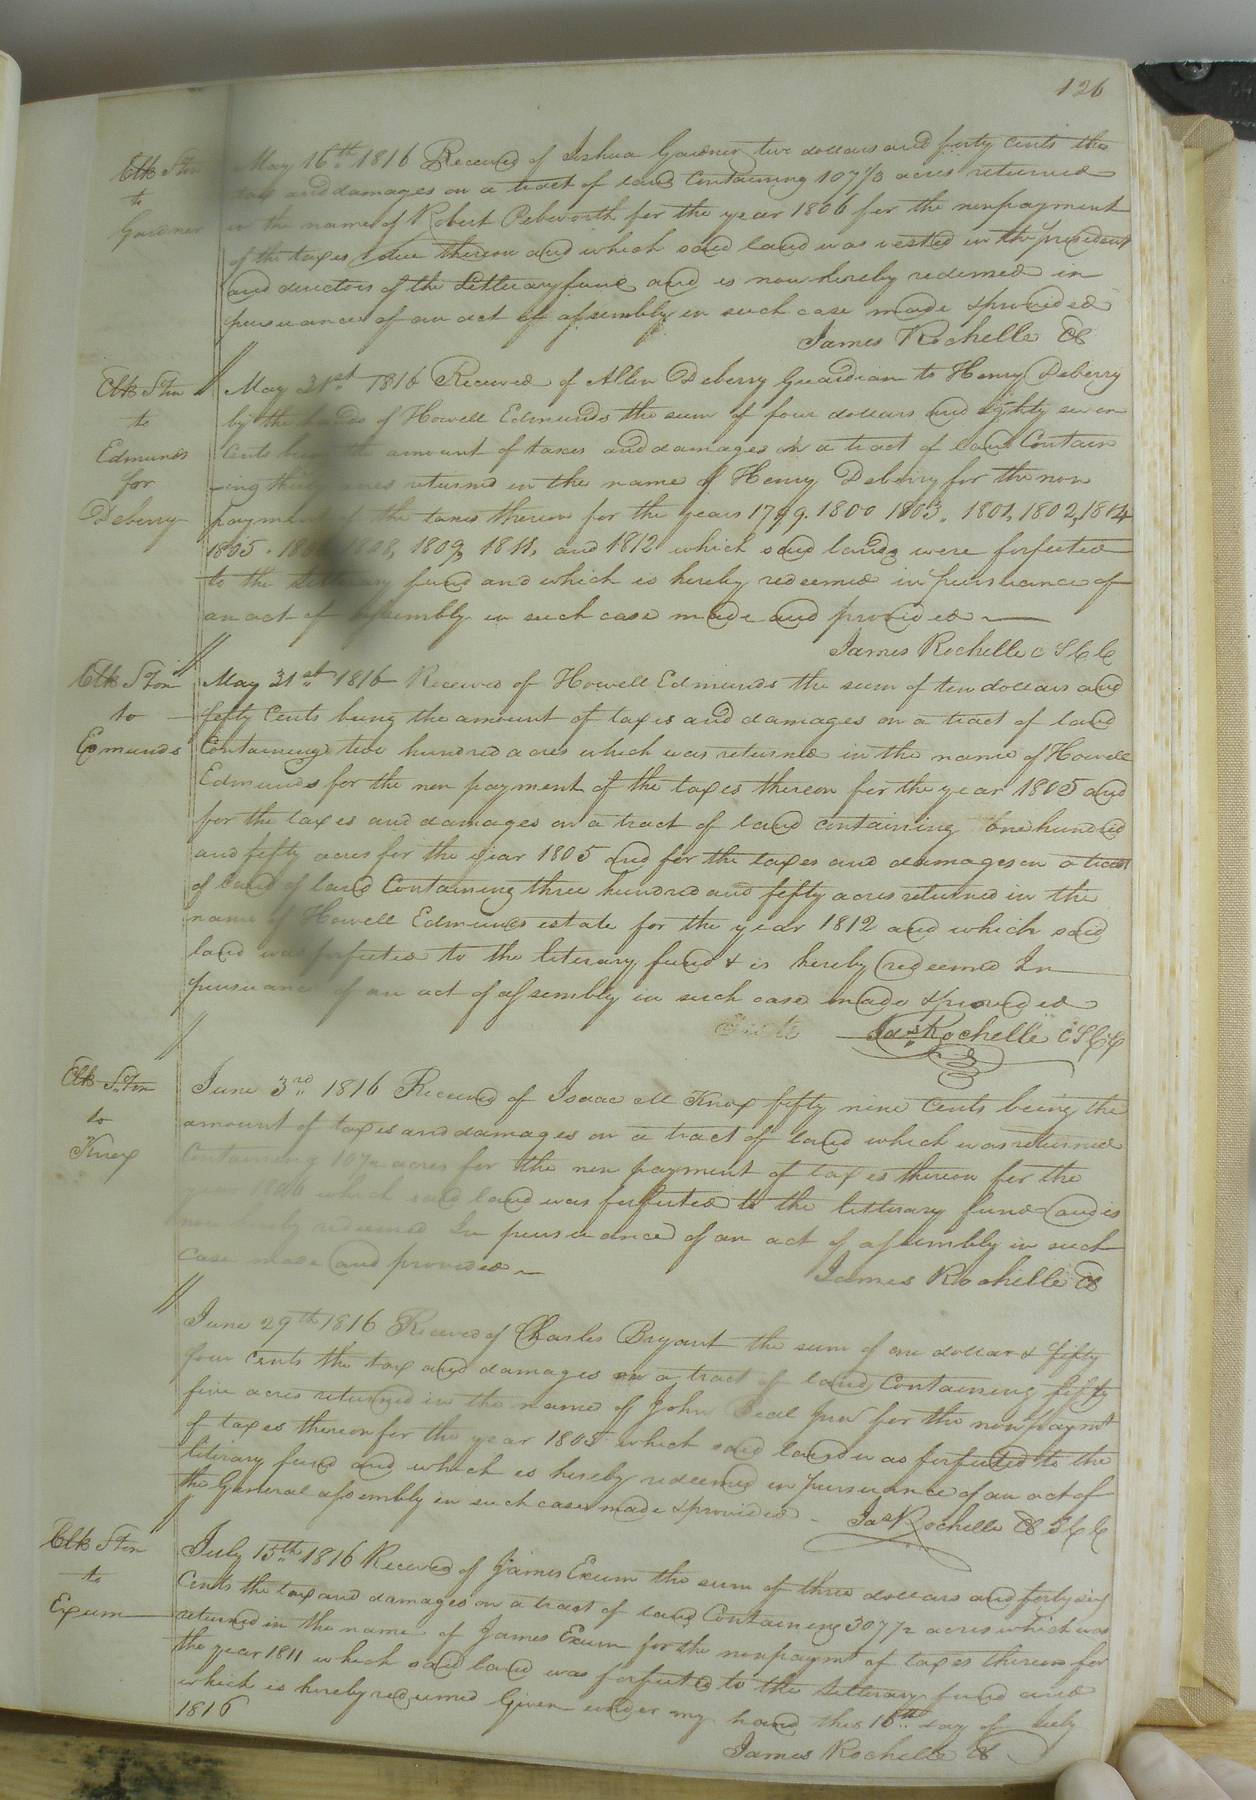 126
Clk S.ton
to
Gardner
May 16th 1816 Received of Joshua Gardner two dollars and forty cents the
tax and damages on a tract of land Containing 107 1/3 acres returned
in the name of Robert Pebworth for the year 1806 for the nonpayment
of the taxes due thereon and which said land was vested in the president
and directors of the Litterary fund and is now hereby redeemed in
pursuance of an act of assembly in such case made & provided
James Rochelle
Clk S Ton
to
Edmunds
for
Deberry
May 31st 1816 Received of Allen Deberry Guardian to Henry Deberry
by the hands of Howell Edmunds the sum of four dollars and eighty seven
Cents being the amount of taxes and damages on a tract of land Contain
-ing thirty acres returned in the name of Henry Deberry for the non
payment of the taxes thereon for the years 1799. 1800 1803. 1801, 1802, 1804
1805. 1808, 1809, 1811, and 1812 which said lands were forfeited
to the Litterary fund and which is hereby redeemed in pursuance of
an act of assembly in such case made and provided
James Rochelle C S C C
Clk S Ton
to
Edmunds
May 31st 1816 Received of Howell Edmunds the sum of ten dollars and
fifty Cents being the amount of taxes and damages on a tract of land
Containing two hundred acres which was returned in the name of Howell
Edmunds for the non payment of the taxes thereon for the year 1805 and
for the taxes and damages on a tract of land containing one hundred
and fifty acres for the year 1805 and for the taxes and damages on a tract
of land of land Containing three hundred and fifty acres returned in the
name of Howell Edmunds estate for the year 1812 and which said
land was forfeited to the literary fund & is hereby redeemed In
pursuance of an act of assembly in such case made & provided
Jas Rochelle C S C C
Clk S.Ton
to
Knox
June 3rd 1816 Received of Isaac M Knox fifty nine Cents being the
amount of taxes and damages on a tract of land which was returned
Containing 107 1/2 acres for the non payment of taxes thereon for the
year 1806 which said land was forfeited to the litterary fund and is
now hereby redeemed In pursuance of an act of assembly in such
case made and provided
James Rochelle
June 29th 1816 Received of Charles Bryant the sum of one dollar & fifty
four cents the tax and damages on a tract of land Containing fifty
five acres returned in the name of John for the non paymt
of taxes thereon for the year 1805 which said land was forfeited to the
literary fund and which is hereby redeemed in pursuance of an act of
the General assembly in such case made & provided
Jas Rochelle S C C
Clk S Ton
to
Exum
July 15th 1816 Received of James Exum the sum of three dollars and forty six
Cents the tax and damages on a tract of land Containing 307 1/2 acres which was
returned in the name of James Exum for the nonpaymt of taxes thereon for
the year 1811 which said land was forfeited to the Litterary fund and
which is hereby redeemed Given under my hand this 15th day of July
1816
James Rochelle